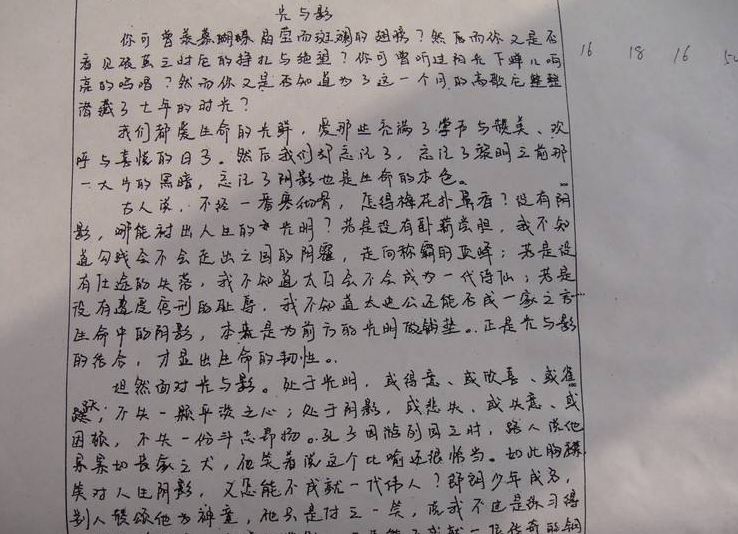 光与影
你可曾羡慕蝴蝶晶莹而斑斓的翅膀？然而你又是否
看见破茧之时它的挣扎与绝望？你可曾听过阳光下蝉儿响
亮的鸣唱？然而你又是否知道为了这一个月的高歌它整整
潜藏了七年的时光？
我们都爱生命的光鲜，爱那些充满了掌声与赞美、欢
呼与喜悦的日子。然后我们却忘记了，忘记了黎明之前那
一大片的黑暗，忘记了阴影也是生命的本色。
古人说，不经一番寒彻骨，怎得梅花扑鼻香？没有阴
影，哪能衬出人生的光明？若是没有卧薪尝胆，我不知
道勾践会不会走出亡国的阴霾，走向称霸的巅峰；若是没
有仕途的失落，我不知道太白会不会成为一代诗仙；若是
没有遭受宫刑的耻辱，我不知道太史公还能否成一家之言…
生命中的阴影，本就是为前方的光明做铺垫。正是光与影
的结合，才显出生命的韧性。
坦然面对光与影。处于光明，或得意、或欣喜、或雀
跃，不失一颗平淡之心；处于阴影，或悲失、或失意、或
困顿，不失一份斗志昂扬。孔子周游列国之时，路人说他
累累如丧家之犬，他笑着说这个比喻还很恰当。如此胸襟
笑对人生阴影，又怎能不成就一代伟人？郎朗少年成名，
别人赞颂他为神童，他只是付之一笑，说我不过是练习得
能不成就一位传奇的钢
16 18 16